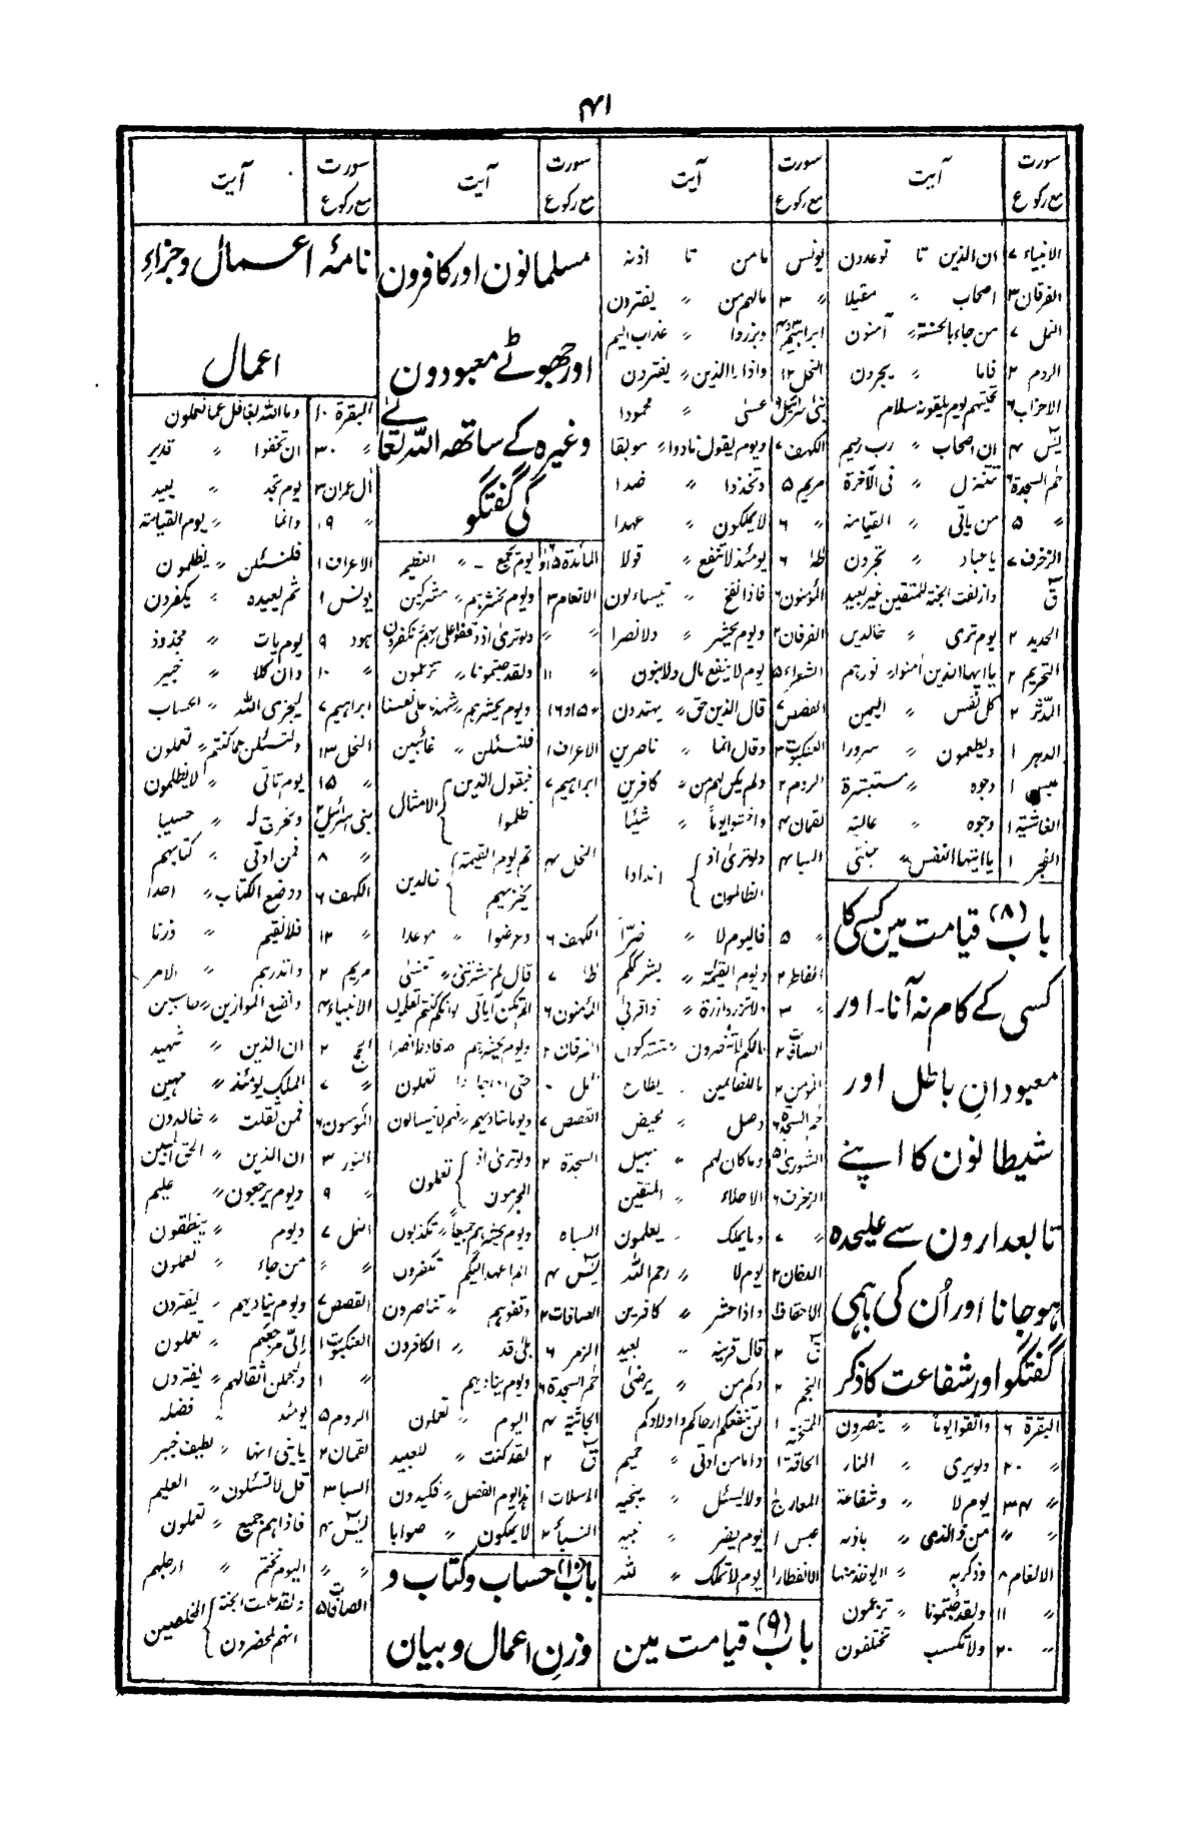 ۴۱
سورت مع رکوع آیت
سورت مع رکوع آیت
سورت مع رکوع آیت
سورت مع رکوع آیت
الانبیاء ۷ ان الذین تا توعدون
الفرقان ۳ اصحاب 〃 مقیلا
النمل ۷ من جاء بالحسنة 〃 آمنون
الروم ۲ فاما 〃 یحبرون
الاحزاب ۶ تحیتہم یوم یلقونہ سلام
یٰس ۴ ان اصحاب 〃 رب رحیم
حٰم السجدة ۶ تتنزل 〃 فی الآخرة
〃 ۵ من یاتی 〃 القیامة
الزخرف ۷ یا عباد 〃 تحبرون
قٓ وازلفت الجنة للمتقین غیر بعید
الحدید ۲ یوم تری 〃 خالدین
التحریم ۲ یا ایہا الذین اٰمنوا 〃 نورہم
المدثر ۲ کل نفس 〃 الیمین
الدہر ۱ ویطعمون 〃 سرورا
عبس ۱ وجوہ 〃 مستبشرة
الغاشیة ۱ وجوہ 〃 عالیة
الفجر ۱ یا ایتہا النفس 〃 جنتی
باب (۸) قیامت مین کسی کا
کسی کے کام نہ آنا۔ اور
معبودانِ باطل اور
شیطانون کا اپنے
تابعدارون سے علیحدہ
ہوجانا اور اُن کی باہمی
گفتگو اور شفاعت کا ذکر
البقرة ۶ واتقوا یوما 〃 ینصرون
〃 ۲۰ ولو یری 〃 النار
〃 ۳۴ یوم لا 〃 وشفاعة
〃 〃 من ذالذی 〃 باذنہ
الانعام ۸ وذکر بہ 〃 لا یوخذ منہا
〃 ۱۱ ولقد جئتمونا 〃 تزعمون
〃 ۲۰ ولا تکسب 〃 تختلفون
یونس مامن تا اذنہ
〃 ۳ مالہم من 〃 یفترون
ابراہیم ۳و۴ وبرزوا 〃 عذاب الیم
النحل ۱۲ واذا راالذین 〃 یفترون
بنی اسرائیل ۹ عسیٰ 〃 محمودا
الکہف ۷ ویوم یقول نادوا 〃 موبقا
مریم ۵ واتخذوا 〃 ضدا
〃 ۶ لا یملکون 〃 عہدا
طٰہٰ ۶ یومئذ لا تنفع 〃 قولا
المؤمنون ۶ فاذا نفخ 〃 یتساءلون
الفرقان ۲ ویوم یحشر 〃 ولا نصرا
الشعراء ۵ یوم لا ینفع مال ولا بنون
القصص ۷ قال الذین حق 〃 یہتدون
العنکبوت ۳ وقال انما 〃 ناصرین
الروم ۲ ولم یکن لہم من 〃 کافرین
لقمان ۴ واخشوا یوما 〃 شیئا
السبا ۴ ولو تریٰ اذ الظالمون 〃 اندادا
〃 ۵ فالیوم لا 〃 ضرّا
الفاطر ۲ ویوم القیٰمة 〃 بشرککم
〃 ۳ ولا تزر وازرة 〃 ذا قربیٰ
الصافات ۲ مالکم لا تنصرون 〃 مشترکون
المومن ۲ ما للظالمین 〃 یطاع
حٰم السجدة ۶ وضل 〃 محیص
الشوریٰ ۵ وما کان لہم 〃 سبیل
الزخرف ۶ الاخلاء 〃 المتقین
〃 ۷ ولا یملک 〃 یعلمون
الدخان ۲ یوم لا 〃 رحم اللہ
الاحقاف واذا حشر 〃 کافرین
قٓ ۲ قال قرینہ 〃 بعید
النجم ۲ وکم من 〃 یرضیٰ
الممتحنة ۱ لن تنفعکم ارحامکم ولا اولادکم
الحاقة ۱ واما من اوتی 〃 حمیم
المعارج ولا یسئل 〃 ینجیہ
عبس ۱ یوم یفر 〃 بنیہ
الانفطار ۱ یوم لا تملک 〃 للہ
باب (۹) قیامت مین
مسلمانون اور کافرون
اور جھوٹے معبودون
وغیرہ کے ساتھ اللہ تعالےٰ
کی گفتگو
المائدة ۱۵و۱۶ یوم یجمع 〃 العظیم
الانعام ۳ ویوم نحشرہم 〃 مشرکین
〃 〃 ولو تریٰ اذ وقفوا علی ربہم تکفرون
〃 ۱۱ ولقد جئتمونا 〃 تزعمون
〃 ۱۵و۱۶ ویوم یحشرہم 〃 شہدنا علی انفسنا
الاعراف ۱ فلنسئلن 〃 غائبین
ابراہیم ۷ فیقول الذین ظلموا 〃 الامثال
النحل ۴ ثم یوم القیٰمة یخزیہم 〃 خالدین
الکہف ۶ وعرضوا 〃 موعدا
طٰہٰ ۷ قال لم حشرتنی 〃 تنسیٰ
المؤمنون ۶ الم تکن آیاتی 〃 کنتم تعلمون
الفرقان ۲ ویوم یحشرہم 〃 صرفا ولا نصرا
النمل حتی اذا جاءوا 〃 تعملون
القصص ۷ ویوم ینادیہم 〃 فہم لا یتساءلون
السجدة ۲ ولو تریٰ اذ المجرمون 〃 تعملون
السبا ۵ ویوم یحشرہم جمیعا 〃 تکذبون
یٰس ۴ الم اعہد الیکم 〃 تکفرون
الصافات ۲ وقفوہم 〃 تناصرون
الزمر ۶ بلیٰ قد 〃 الکافرون
حٰم السجدة ۶ ویوم ینادیہم
الجاثیة ۴ الیوم 〃 تعملون
قٓ ۲ لقد کنت 〃 للعبید
المرسلات ۱ ہذا یوم الفصل 〃 فکیدون
النبأ ۲ لا یملکون 〃 صوابا
باب (۱۰) حساب وکتاب و
وزنِ اعمال و بیان
نامۂ اعمال وجزاءِ
اعمال
البقرة ۱۰ وما اللہ بغافل عما تعملون
〃 ۳۰ ان تخفوا 〃 قدیر
اٰل عمران ۳ یوم تجد 〃 بعید
〃 ۱۹ وانما 〃 یوم القیامة
الاعراف ۱ فلنسئلن 〃 یظلمون
یونس ۱ ثم یعیدہ 〃 یکفرون
ہود ۹ یوم یات 〃 مجذوذ
〃 ۱۰ وان کلا 〃 خبیر
ابراہیم ۷ لیجزی اللہ 〃 الحساب
النحل ۱۳ ولتسئلن عما کنتم 〃 تعملون
〃 ۱۵ یوم تاتی 〃 لا یظلمون
بنی اسرائیل ۲ ونخرج لہ 〃 حسیبا
〃 ۸ فمن اوتی 〃 کتابہم
الکہف ۶ ووضع الکتاب 〃 احدا
〃 ۱۲ فلا نقیم 〃 وزنا
مریم ۲ وانذرہم 〃 الامر
الانبیاء ۴ ونضع الموازین 〃 حاسبین
الحج ۲ ان الذین 〃 شہید
〃 ۷ الملک یومئذ 〃 مہین
المؤمنون ۶ فمن ثقلت 〃 خالدون
النور ۳ ان الذین 〃 الحق المبین
〃 ۹ ویوم یرجعون 〃 علیم
النمل ۷ ویوم 〃 ینطقون
〃 〃 من جاء 〃 تعملون
القصص ۷ ویوم ینادیہم 〃 یفترون
العنکبوت ۱ الیّ مرجعکم 〃 تعملون
〃 ۱ ولیحملن اثقالہم 〃 یفترون
الروم ۵ یومئذ 〃 فضلہ
لقمان ۲ یا بنی انہا 〃 لطیف خبیر
السبا ۳ قل لا تسئلون 〃 العلیم
یٰس ۴ فاذا ہم جمیع 〃 تعملون
〃 〃 الیوم نختم 〃 ارجلہم
الصافات ۵ ولقد علمت الجنة انہم لمحضرون 〃 المخلصین